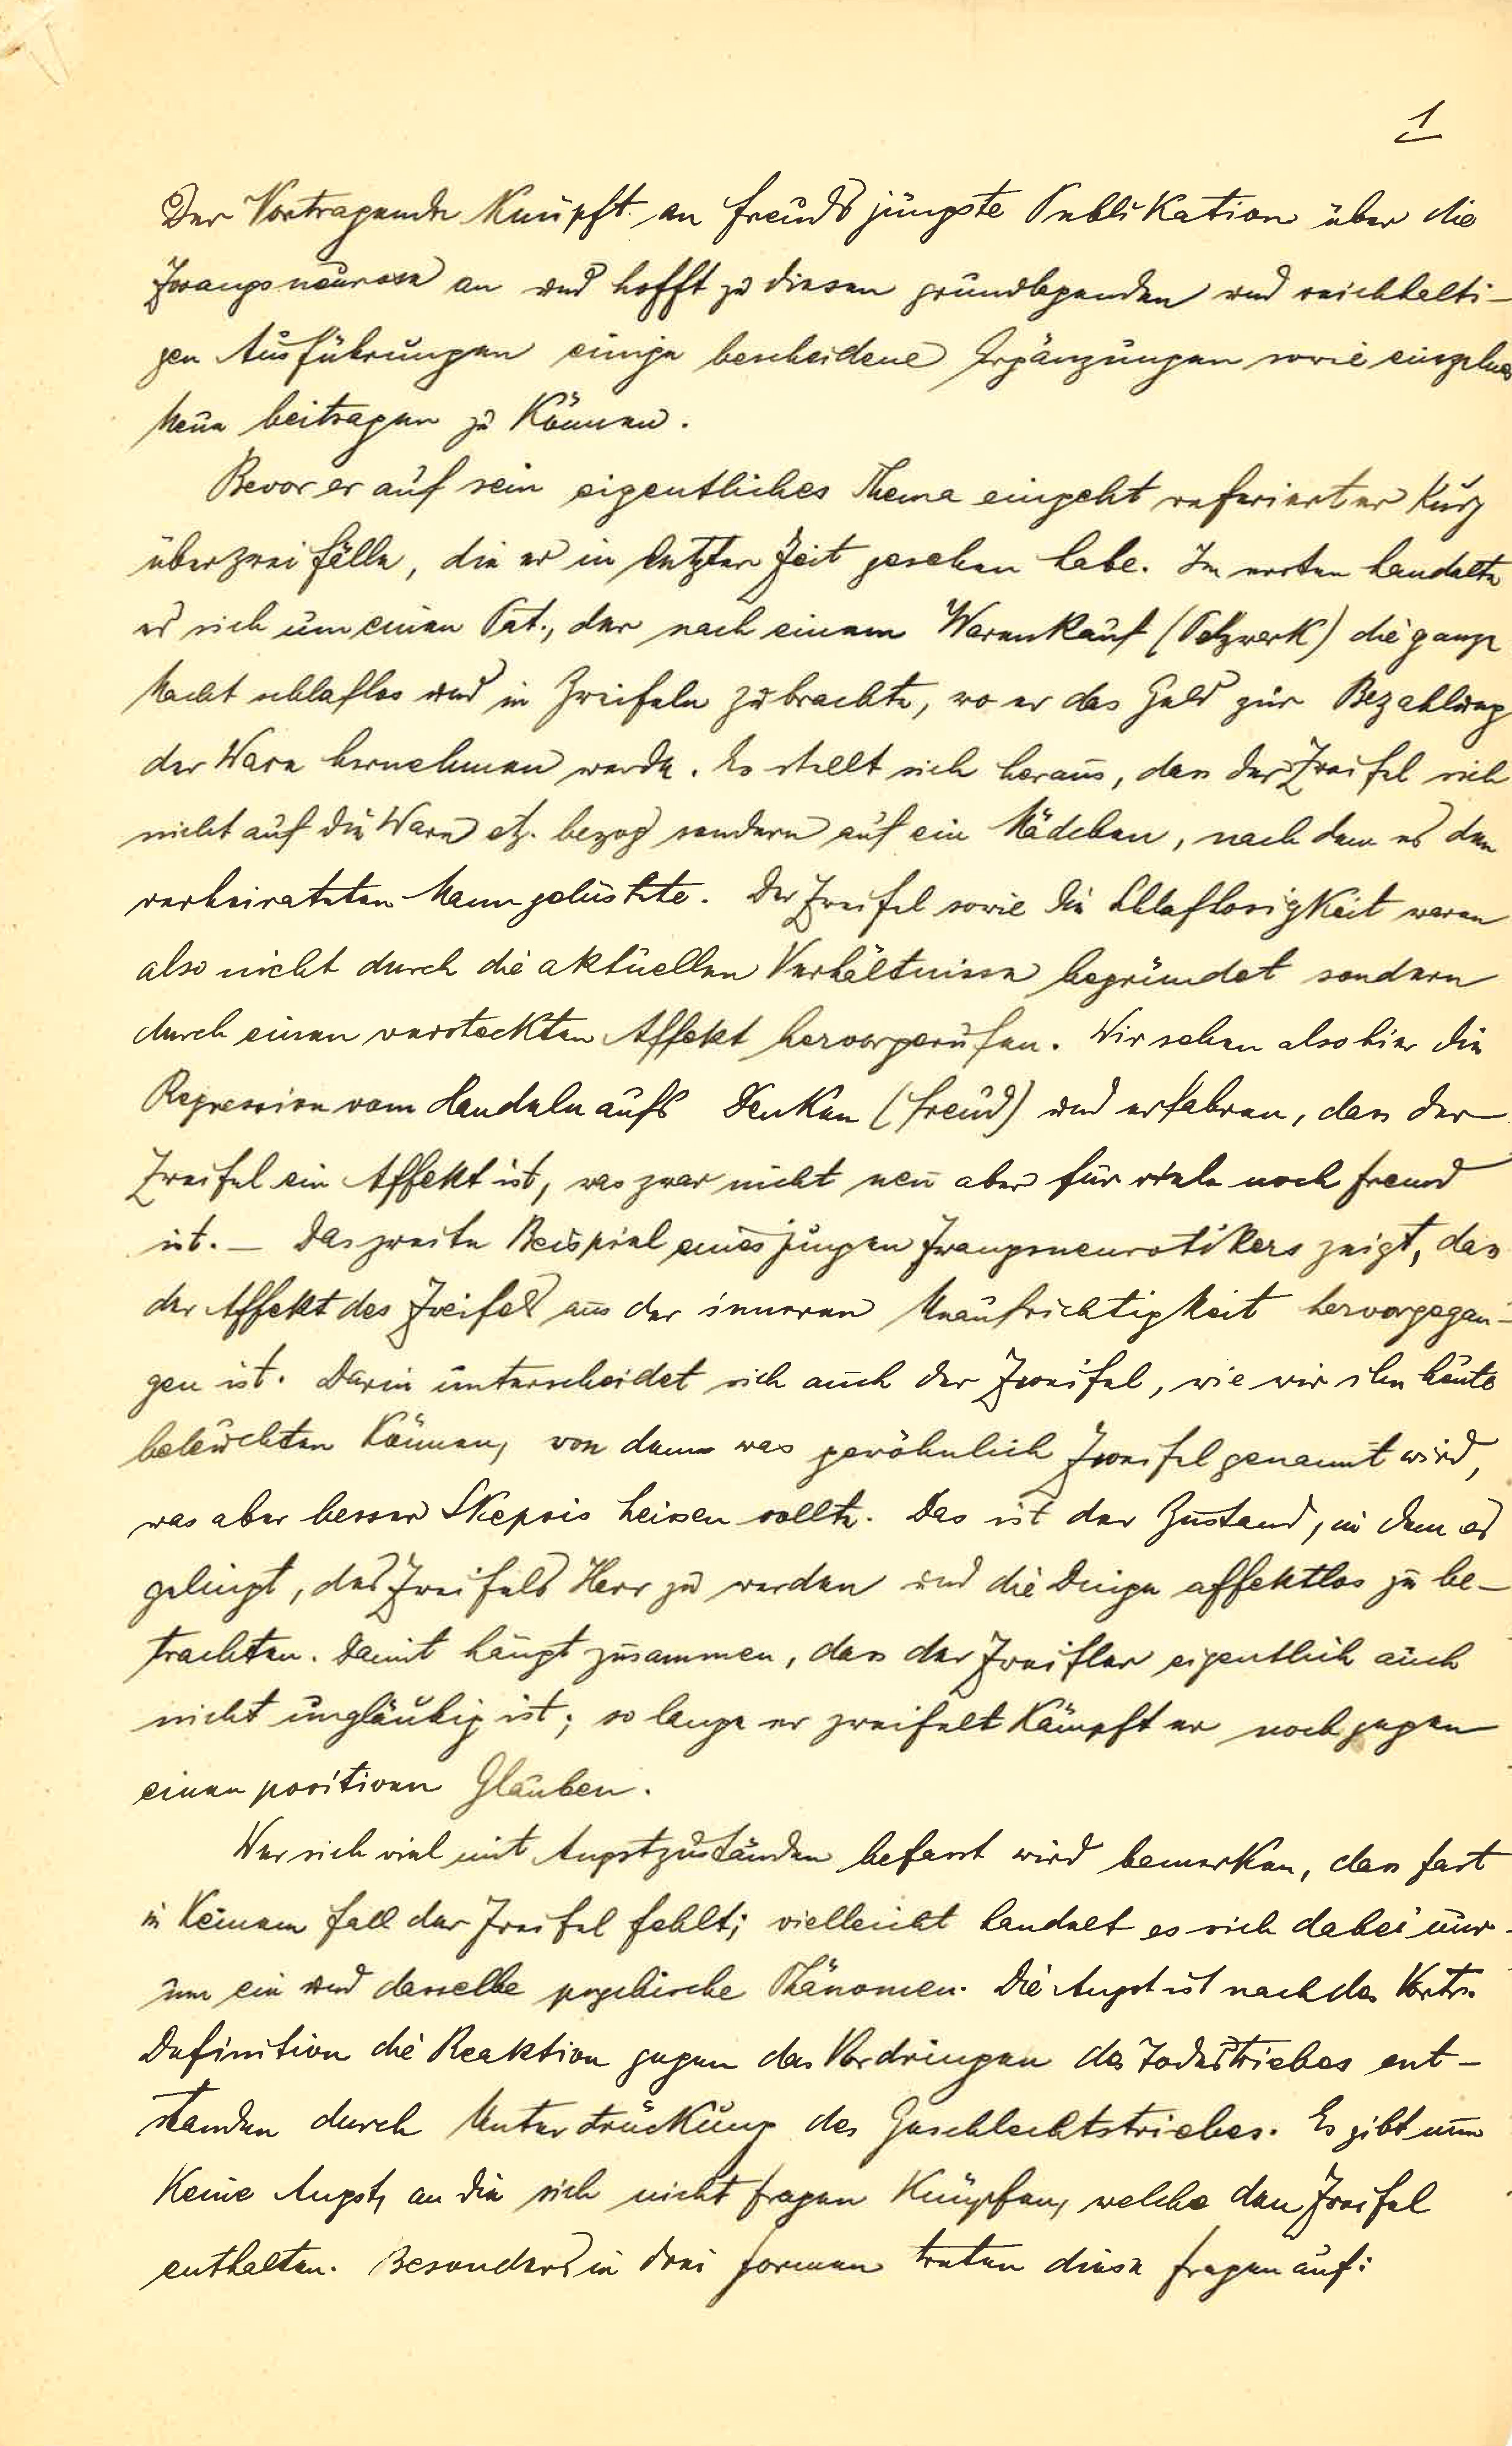 1
Der Vortragende knüpft an Freuds jüngste Publikation über die
Zwangsneurose an und hofft zu diesen grundlegenden und reichhalti-
gen Ausführungen einige bescheidene Ergänzungen sowie einzelnes
Neue beitragen zu können.
Bevor er auf sein eigentliches Thema eingeht referiert er kurz
über zwei Fälle, die er in letzter Zeit gesehen habe. Im ersten handelte
es sich um einen Pat., der nach einem Warenkauf (Pelzwerk) die ganze
Nacht schlaflos und in Zweifeln zubrachte, wo er das Geld zur Bezahlung
der Ware hernehmen werde. Es stellt sich heraus, dass der Zweifel sich
nicht auf die Ware etz. bezog sondern auf ein Mädchen, nach dem es den
verheirateten Mann gelüstete. Der Zweifel sowie die Schlaflosigkeit waren
also nicht durch die aktuellen Verhältnisse begründet sondern
durch einen versteckten Affekt hervorgerufen. Wir sehen also hier die
Regression vom Handeln aufs Denken (Freud) und erfahren, dass der
Zweifel ein Affekt ist, was zwar nicht neu aber für viele noch fremd
ist. — Das zweite Beispiel eines jungen Zwangsneurotikers zeigt, dass
der Affekt des Zweifels aus der inneren Unaufrichtigkeit hervorgegan-
gen ist. Darin unterscheidet sich auch der Zweifel, wie wir ihn heute
beleuchten können, von dem was gewöhnlich Zweifel genannt wird,
was aber besser Skepsis heissen sollte. Das ist der Zustand, in dem es
gelingt, des Zweifels Herr zu werden und die Dinge affektlos zu be-
trachten. Damit hängt zusammen, dass der Zweifler eigentlich auch
nicht ungläubig ist; so lange er zweifelt kämpft er noch gegen
einen positiven Glauben.
Wer sich viel mit Angstzuständen befasst wird bemerken, dass fast
in keinem Fall der Zweifel fehlt; vielleicht handelt es sich dabei nur
um ein und dasselbe psychische Phänomen. Die Angst ist nach des Vortr.
Definition die Reaktion gegen das Vordringen des Todestriebes ent-
standen durch Unterdrückung des Geschlechtstriebes. Es gibt nun
keine Angst, an die sich nicht Fragen knüpfen, welche den Zweifel
enthalten. Besonders in drei Formen treten diese Fragen auf: